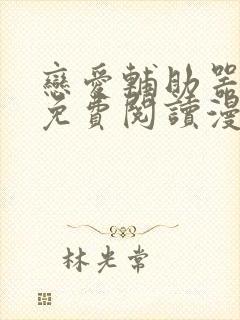 戀愛輔助器
免費閱讀漫
林光常